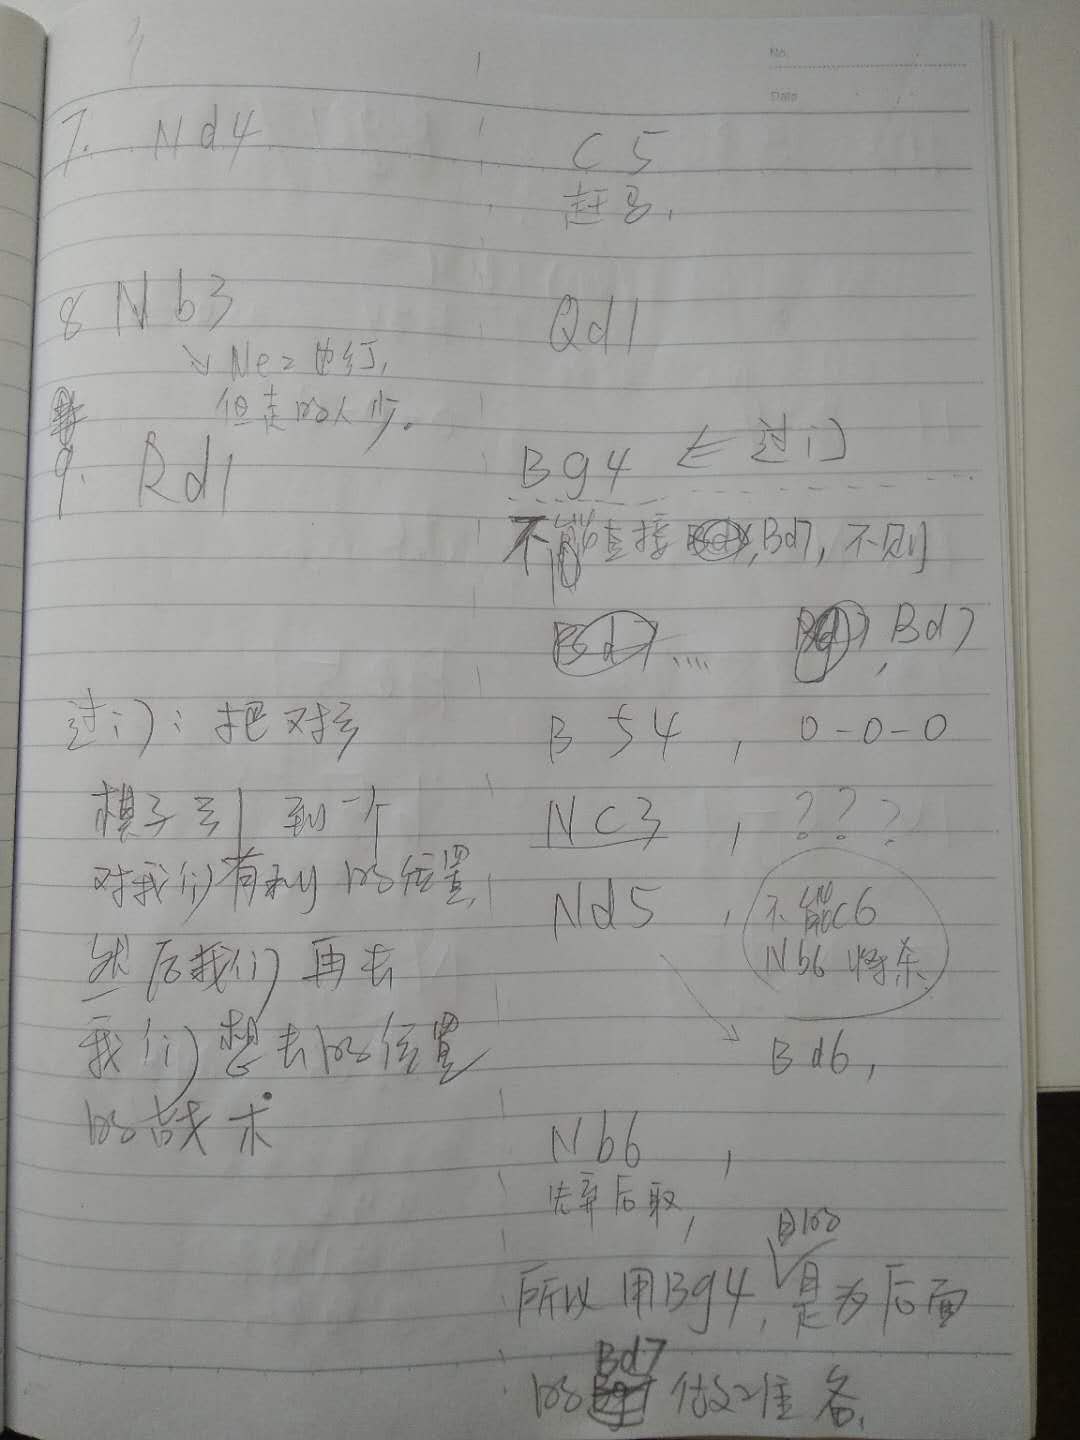 No.
Date
7. Nd4 C5
赶马,
8 Nb3 Qd1
↘ Ne2 也行,
但走的人少。
9. Rd1 Bg4 ← 过门
不能直接 Bd7, 不则
Bd7 .... Bd7
过门: 把对手 B f4 , 0-0-0
棋子引到一个 NC3 , ? ? ?
对我们有利的位置, Nd5 , 不能C6
然后我们再去 Nb6 将杀
我们想去的位置 Bd6,
的战术 Nb6 ,
先弃后取,
目的
所以用Bg4, 是为后面
Bd7
的 做准备.